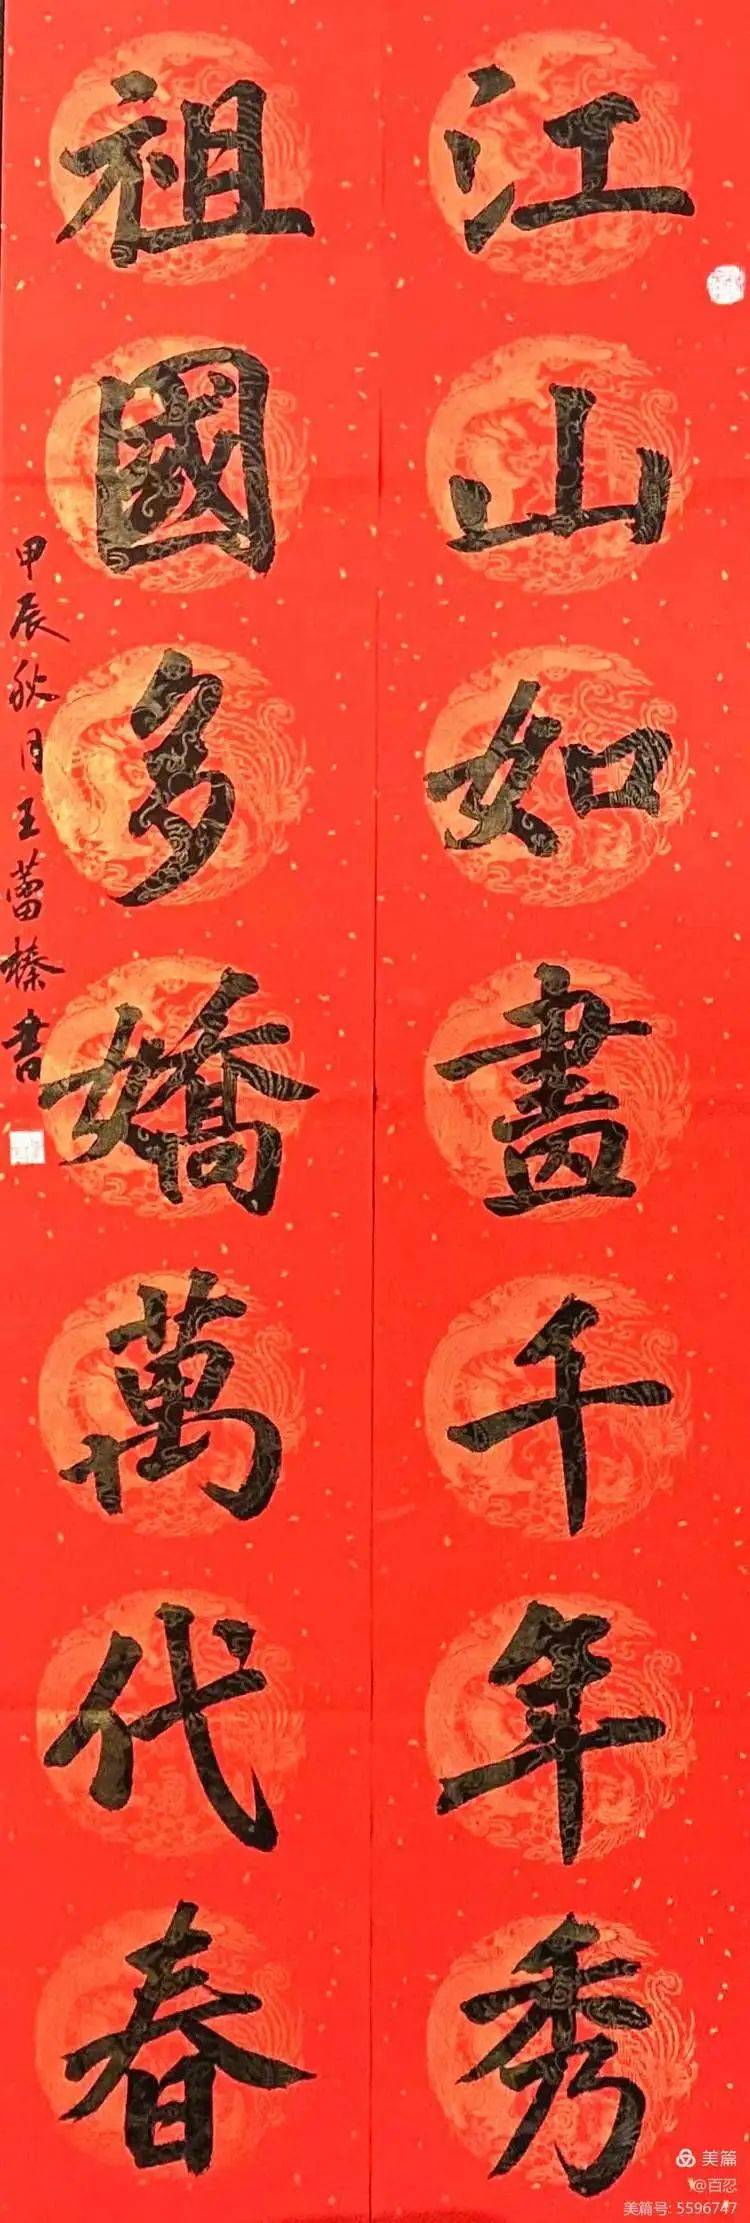 江山如畫千年秀
祖國多嬌萬代春
甲辰秋月王蕾榛書
美篇
@百忍
美篇号: 5596747